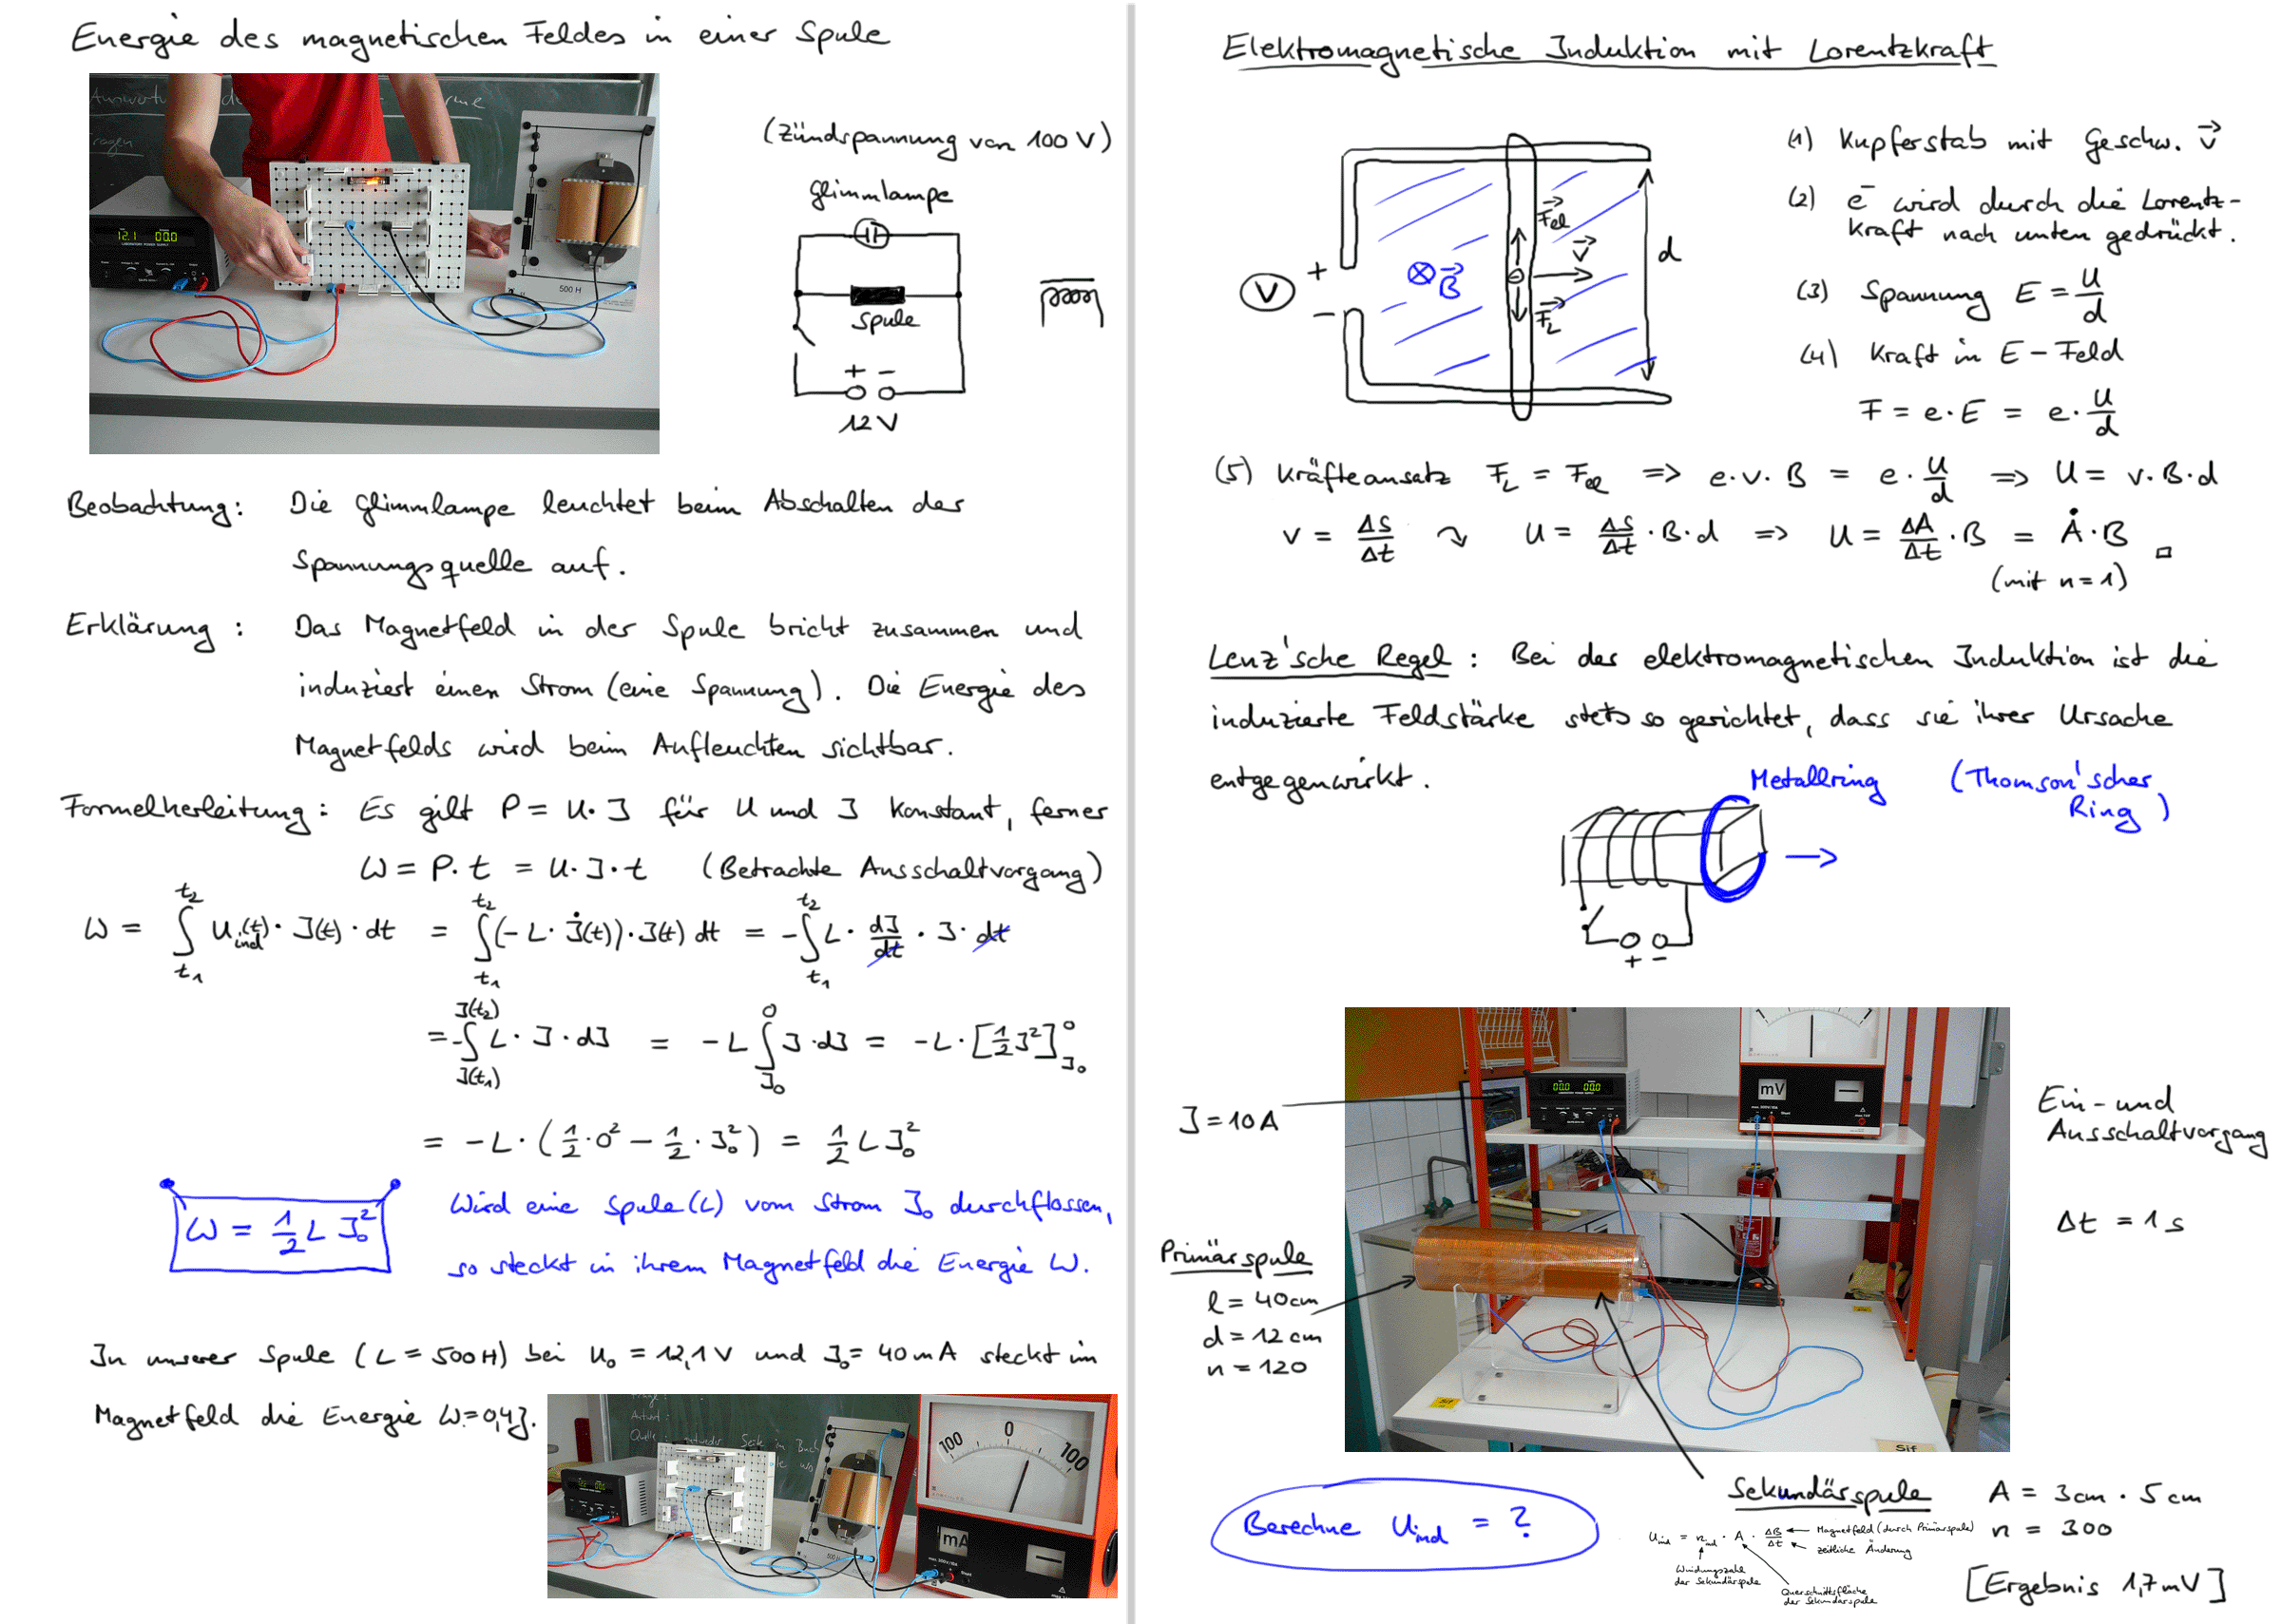 Energie des magnetischen Feldes in einer Spule
12.1 00.0
500 H
(Zündspannung von 100 V)
Glimmlampe
Spule
+ −
12 V
Beobachtung: Die Glimmlampe leuchtet beim Abschalten der
Spannungsquelle auf.
Erklärung: Das Magnetfeld in der Spule bricht zusammen und
induziert einen Strom (eine Spannung). Die Energie des
Magnetfelds wird beim Aufleuchten sichtbar.
Formelherleitung: Es gilt P = U · I für U und I konstant, ferner
W = P · t = U · I · t (Betrachte Ausschaltvorgang)
W = ∫_{t₁}^{t₂} U_ind(t) · I(t) · dt = ∫_{t₁}^{t₂} (− L · İ(t)) · I(t) dt = − ∫_{t₁}^{t₂} L · dI/dt · I · dt
= − ∫_{I(t₁)}^{I(t₂)} L · I · dI = − L ∫_{I₀}^{0} I · dI = − L · [½ I²]_{I₀}^{0}
= − L · (½ · 0² − ½ · I₀²) = ½ L I₀²
W = ½ L I₀²
Wird eine Spule (L) vom Strom I₀ durchflossen,
so steckt in ihrem Magnetfeld die Energie W.
In unserer Spule (L = 500 H) bei U₀ = 12,1 V und I₀ = 40 mA steckt im
Magnetfeld die Energie W = 0,4 J.
100 0 100
mA
Elektromagnetische Induktion mit Lorentzkraft
V + −
⊗ B⃗
F⃗el
v⃗
F⃗L
d
(1) Kupferstab mit Geschw. v⃗
(2) e⁻ wird durch die Lorentz-
kraft nach unten gedrückt.
(3) Spannung E = U/d
(4) Kraft in E-Feld
F = e · E = e · U/d
(5) Kräfteansatz F_L = F_el => e · v · B = e · U/d => U = v · B · d
v = Δs/Δt ↷ U = Δs/Δt · B · d => U = ΔA/Δt · B = Ȧ · B □
(mit n = 1)
Lenz'sche Regel: Bei der elektromagnetischen Induktion ist die
induzierte Feldstärke stets so gerichtet, dass sie ihrer Ursache
entgegenwirkt.
Metallring (Thomson'scher
Ring)
+ −
00.0 00.0
mV
I = 10 A
Ein- und
Ausschaltvorgang
Δt = 1 s
Primärspule
l = 40 cm
d = 12 cm
n = 120
Sif
Berechne U_ind = ?
Sekundärspule A = 3 cm · 5 cm
n = 300
U_ind = n_ind · A · ΔB/Δt
Magnetfeld (durch Primärspule)
zeitliche Änderung
Windungszahl
der Sekundärspule
Querschnittsfläche
der Sekundärspule
[Ergebnis 1,7 mV]